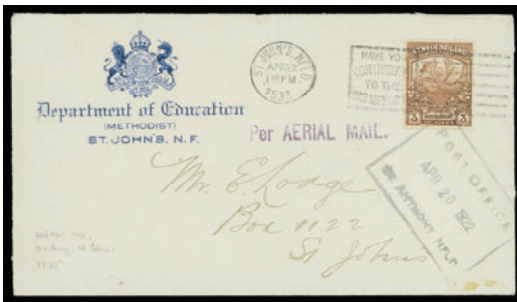 Department of Education
(METHODIST)
ST. JOHN'S, N. F.
ST. JOHN'S, NFLD.
APR 22
1 PM
1922
HAVE YOU
CONTRIBUTED
TO THE
NEWFOUNDLAND
3 3
Per AERIAL MAIL.
POST OFFICE
APR 20 1922
ST ANTHONY NFLD
Mr. E Lodge
Box 1122
St Johns